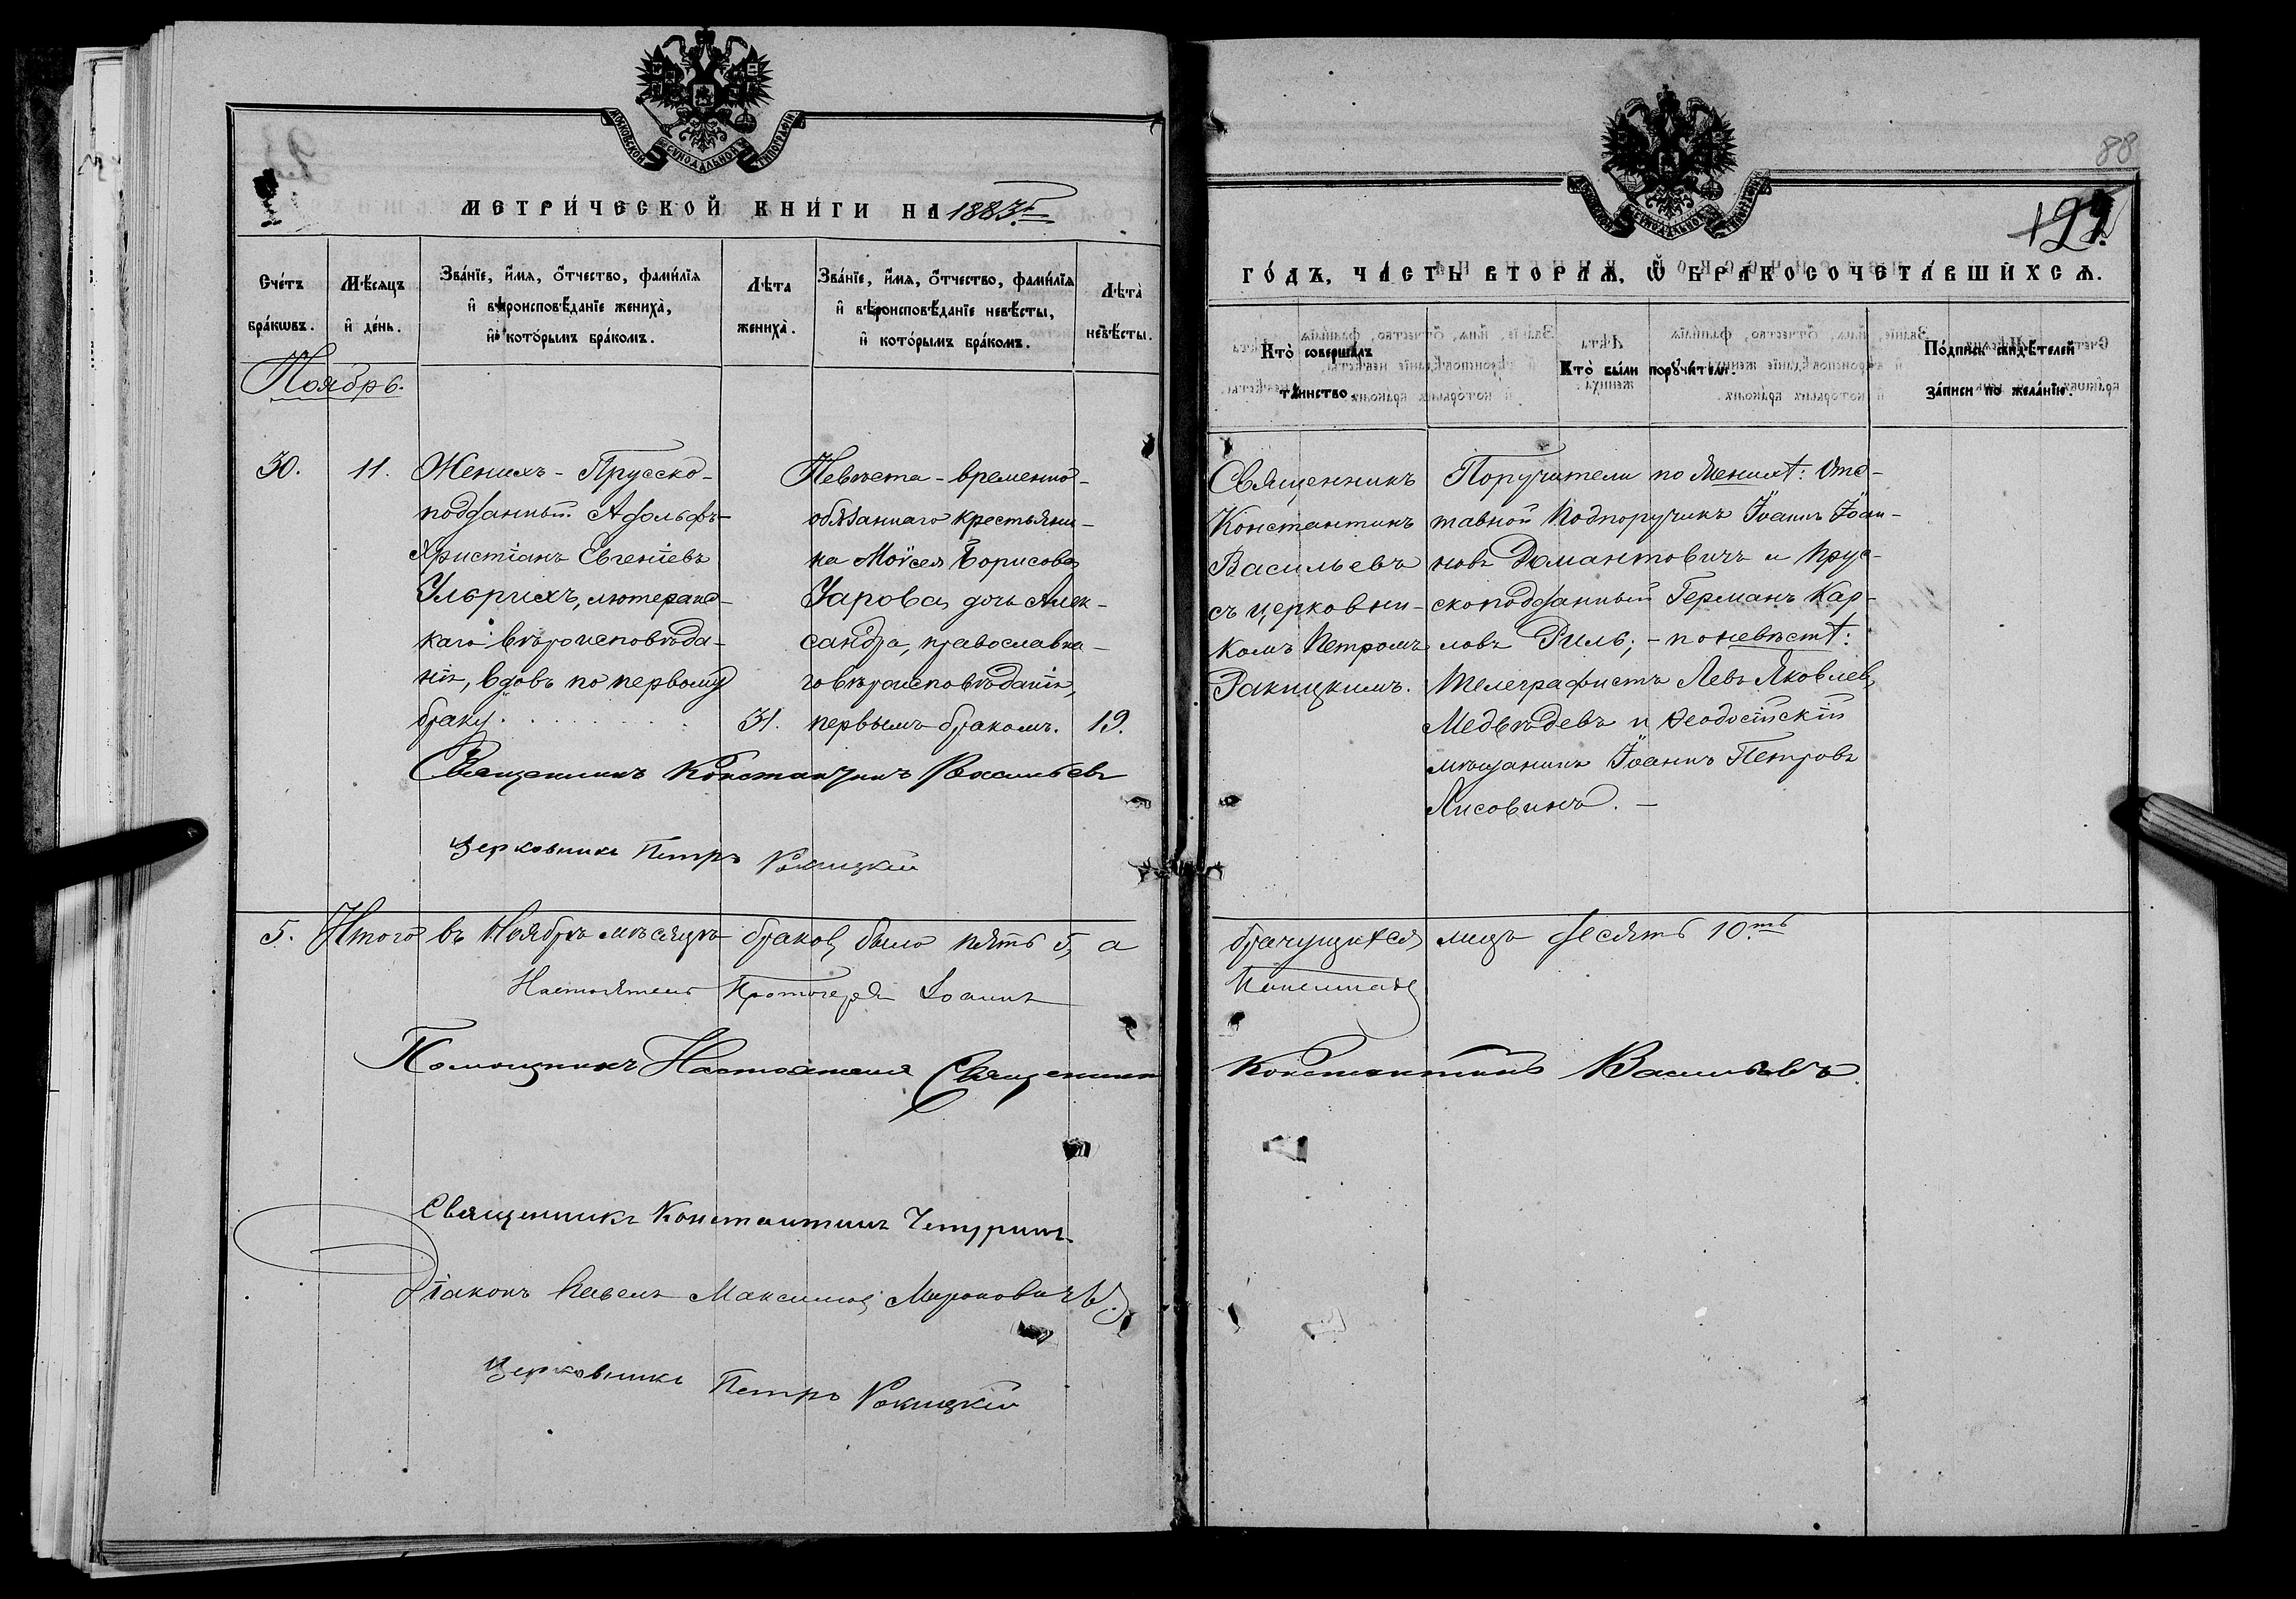 МОСКОВСКОЙ СѴНОДАЛЬНОЙ ТИПОГРАФІИ
МЕТРИ́ЧЕСКОЙ КНИ́ГИ НА 1883й
Сче́тъ бра́кѡвъ.
Мѣ́сяцъ и҆ де́нь.
Зва́нїе, и҆́мя, ѻ҆́тчество, фами́лїя и҆ вѣроисповѣ́данїе жениха̀, и҆ кото́рымъ бра́комъ.
Лѣ́та жениха̀.
Зва́нїе, и҆́мя, ѻ҆́тчество, фами́лїя и҆ вѣроисповѣ́данїе невѣ́сты, и҆ кото́рымъ бра́комъ.
Лѣ́та невѣ́сты.
Ноябрь.
30.
11.
Женихъ - Прусско-
подданный Адольфъ-
Христіанъ Евгеніевъ
Ульрихъ, лютеранс-
каго вѣроисповѣда-
нія, вдовъ по первому
браку.
31.
Невѣста - временно-
обязаннаго крестьяни-
на Моѵсея Борисова
Уарова, дочь Алек-
сандра, православна-
го вѣроисповѣданія,
первымъ бракомъ.
19.
Священникъ Константинъ Васильевъ
Церковникъ Петръ Ракицкій
5. Итого въ Ноябрѣ мѣсяцѣ браковъ было пять 5, а
Настоятель Протоіерей Іоаннъ
Помощникъ Настоятеля Священникъ
Священникъ Константинъ Чепуринъ
Діаконъ Павелъ Максимовъ Мироновичъ.
Церковникъ Петръ Ракицкій
88
129.
МОСКОВСКОЙ СѴНОДАЛЬНОЙ ТИПОГРАФІИ
ГО́ДЪ, ЧА́СТЬ ВТОРА́Я, Ѽ БРАКОСОЧЕТА́ВШИХСЯ.
Кто̀ соверша́лъ та́инство.
Кто̀ бы́ли поручи́тели.
По́дпись свидѣ́телей за́писи по жела́нїю.
Священникъ
Константинъ
Васильевъ
съ церковни-
комъ Петромъ
Ракицкимъ.
Поручители по женихѣ: Отс-
тавной Подпоручикъ Іоаннъ Іоан-
новъ Домантовичъ и Прус-
скоподданный Германъ Кар-
ловъ Риль; - по невѣстѣ:
Телеграфистъ Левъ Яковлевъ
Медвѣдевъ и Ѳеодосійскій
мѣщанинъ Іоаннъ Петровъ
Лисовинъ. -
брачущихся лицъ десять 10ть
Константинъ Васильевъ.